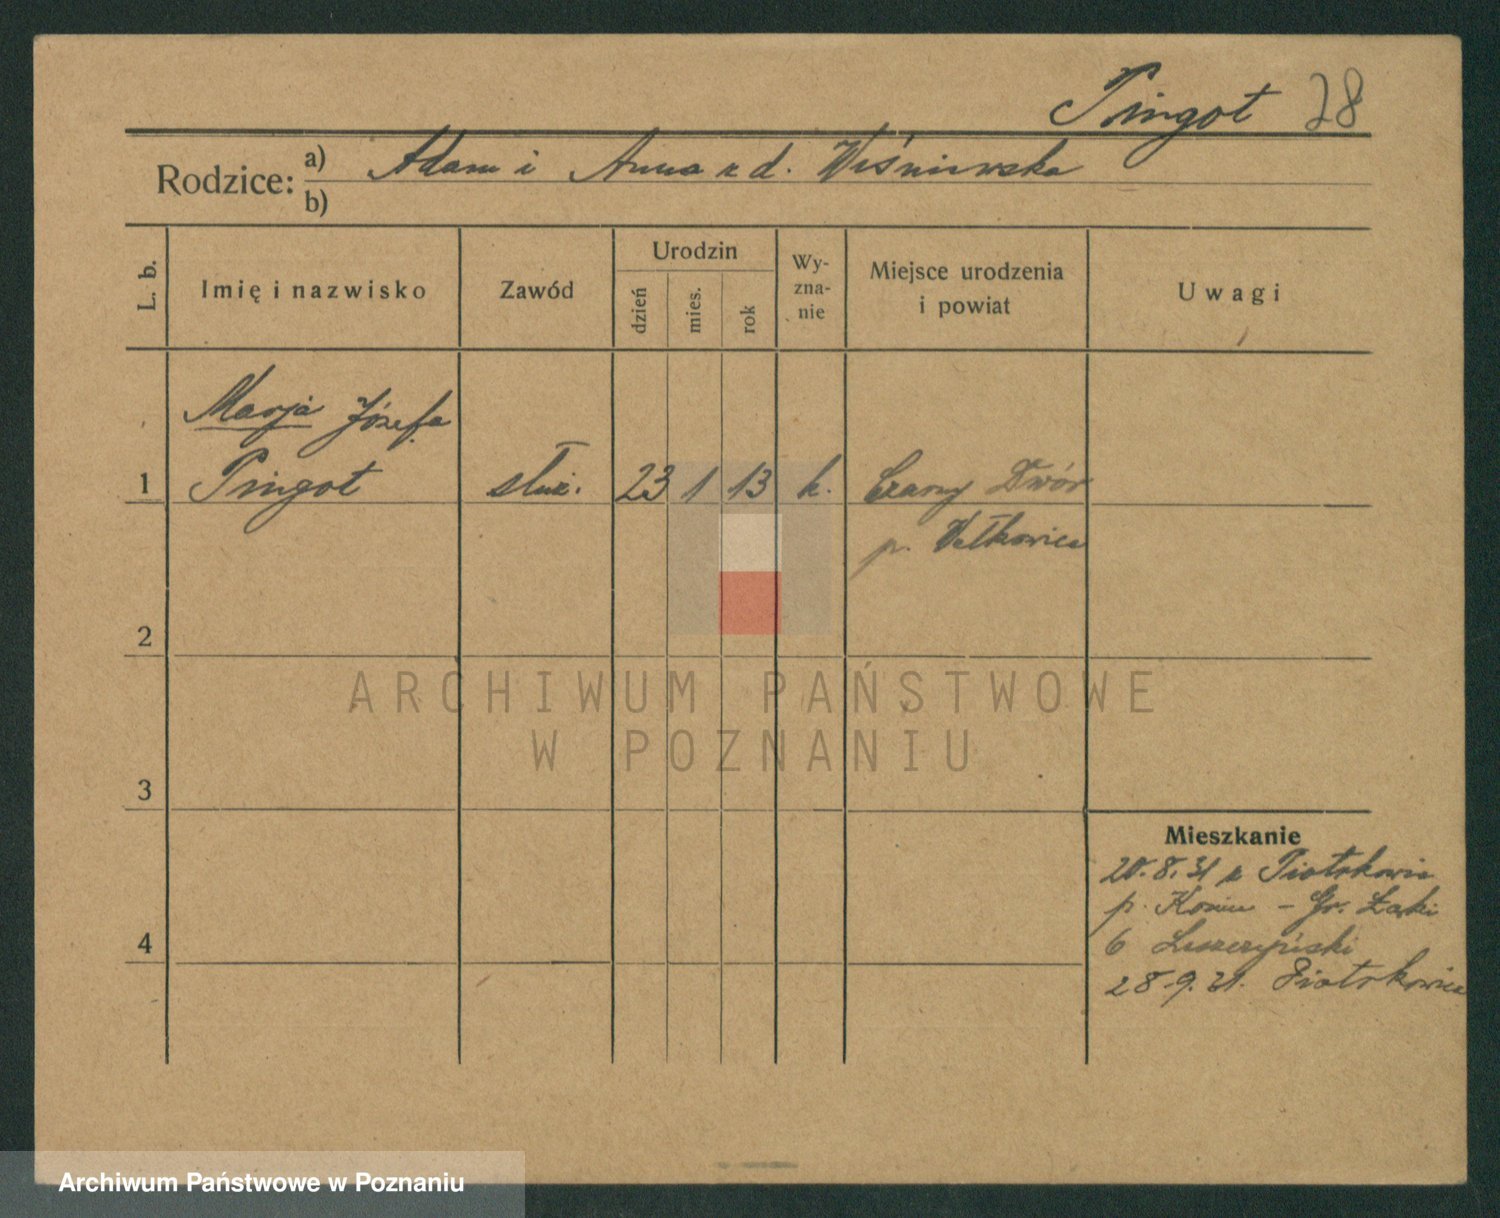 Pingot 28
Rodzice:
a) Adam i Anna z d. Wiśniewska
b)
L. b.
Imię i nazwisko
Zawód
Urodzin
dzień
mies.
rok
Wy-
zna-
nie
Miejsce urodzenia
i powiat
Uwagi
Marja Józefa
1 Pingot służ. 23 1 13 k. Czarny Dwór
p. Witkowice
2
3
4
Mieszkanie
20.8.31 z Piotrkowic
p. Konin - Gr. Łąki
6 Leszczyński
28.9.31. Piotrkowice
ARCHIWUM PAŃSTWOWE
W POZNANIU
Archiwum Państwowe w Poznaniu